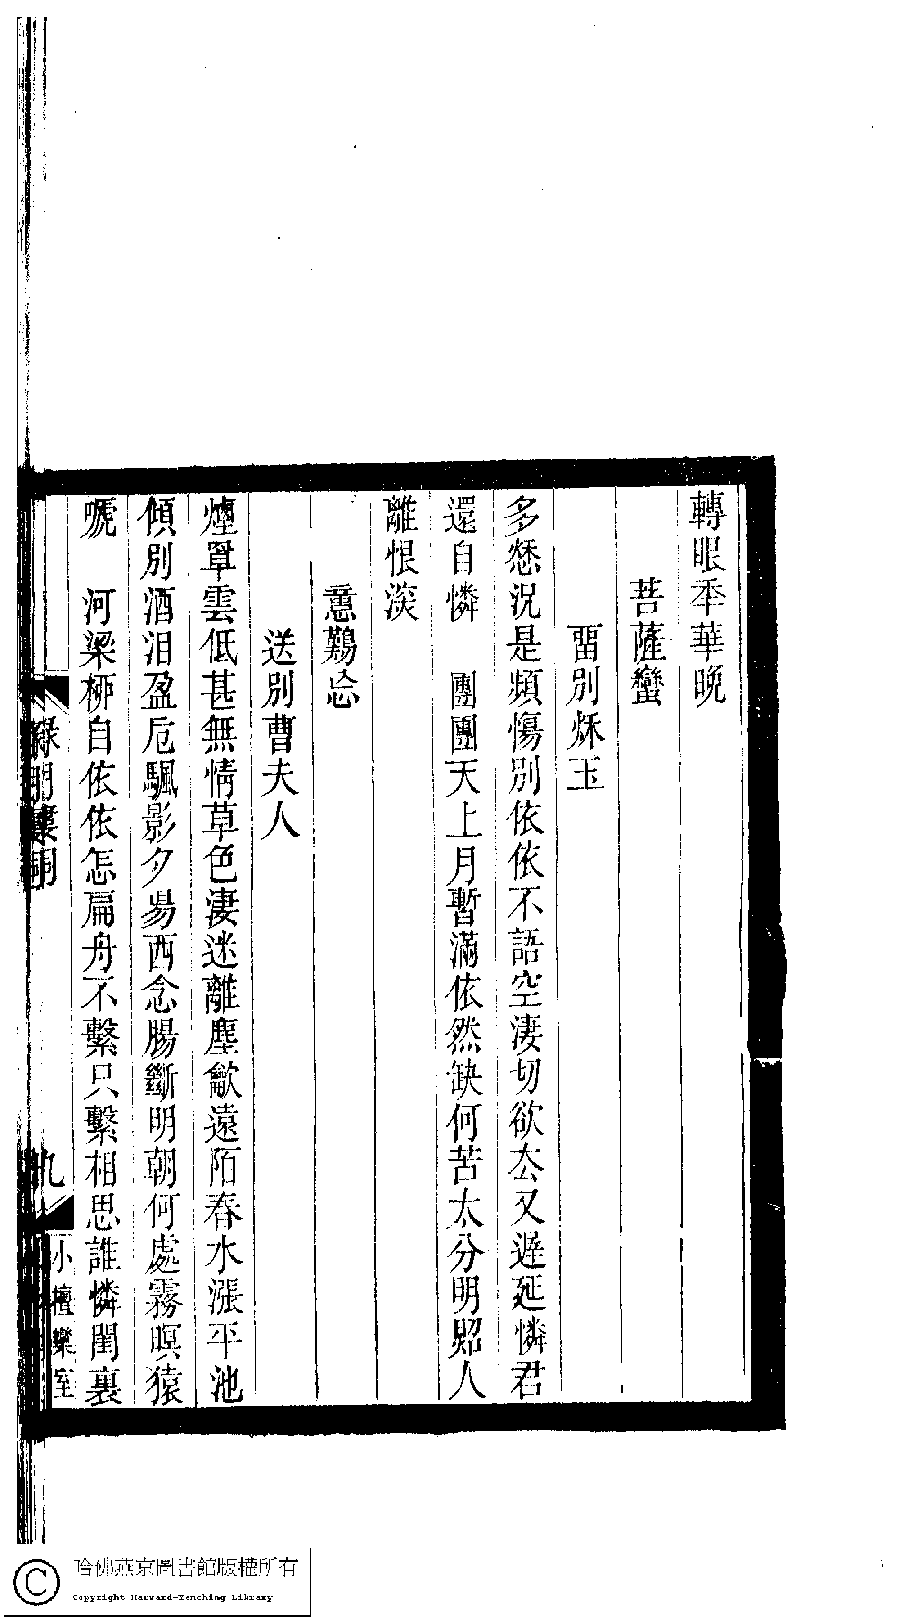 轉眼秊華晚
菩薩蠻
畱別烁玉
多愁況是頻傷別依依不語空淒切欲厺又遲延憐君
還自憐　團團天上月暫滿依然缺何苦太分明照人
離恨深
意難忘
送別曹夫人
煙罩雲低甚無情草色淒迷離塵歙遠陌春水漲平池
傾別酒泪盈卮颿影夕昜西念腸斷明朝何處霧暝猿
嗁　河梁栁自依依怎扁舟不繫只繫相思誰憐閨裏
綠
詞
九
小檀欒室
哈佛燕京圖書館版權所有
Copyright Harvard-Yenching Library